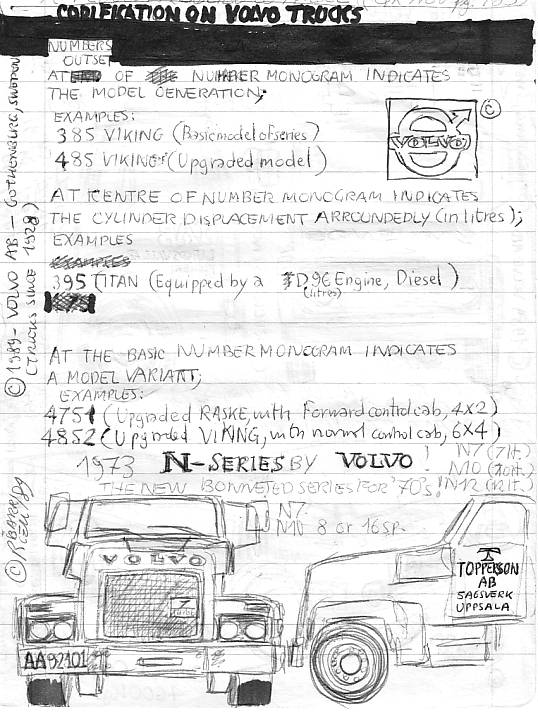 CODIFICATION ON VOLVO TRUCKS
NUMBERS
OUTSET
AT OF NUMBER MONOGRAM INDICATES
THE MODEL GENERATION;
EXAMPLES:
385 VIKING (Basic model of series)
485 VIKING (Upgraded model)
VOLVO
©
AT KENTRE OF NUMBER MONOGRAM INDICATES
THE CYLINDER DISPLACEMENT ARROUNDEDLY (in litres);
EXAMPLES
EXAMPLES
395 TITAN (Equipped by a D96 Engine, Diesel)
(litres)
AT THE BASIC NUMBER MONOGRAM INDICATES
A MODEL VARIANT;
EXAMPLES:
4751 (Upgraded RASKE, with Forward control cab, 4X2)
4852 (Upgraded VIKING, with normal control cab, 6X4)
1973 N-SERIES BY VOLVO!
! N7 (7lt.)
N10 (10lt.)
THE NEW BONNETED SERIES FOR '70's! N12 (12lt.)
N7
N10 8 or 16sp.
© 1989- VOLVO AB - GOTHENBURG, SWEDEN
(TRUCKS SINCE 1928)
VOLVO
AA92101
TOPPERSON
AB
SAGSVERK
UPPSALA